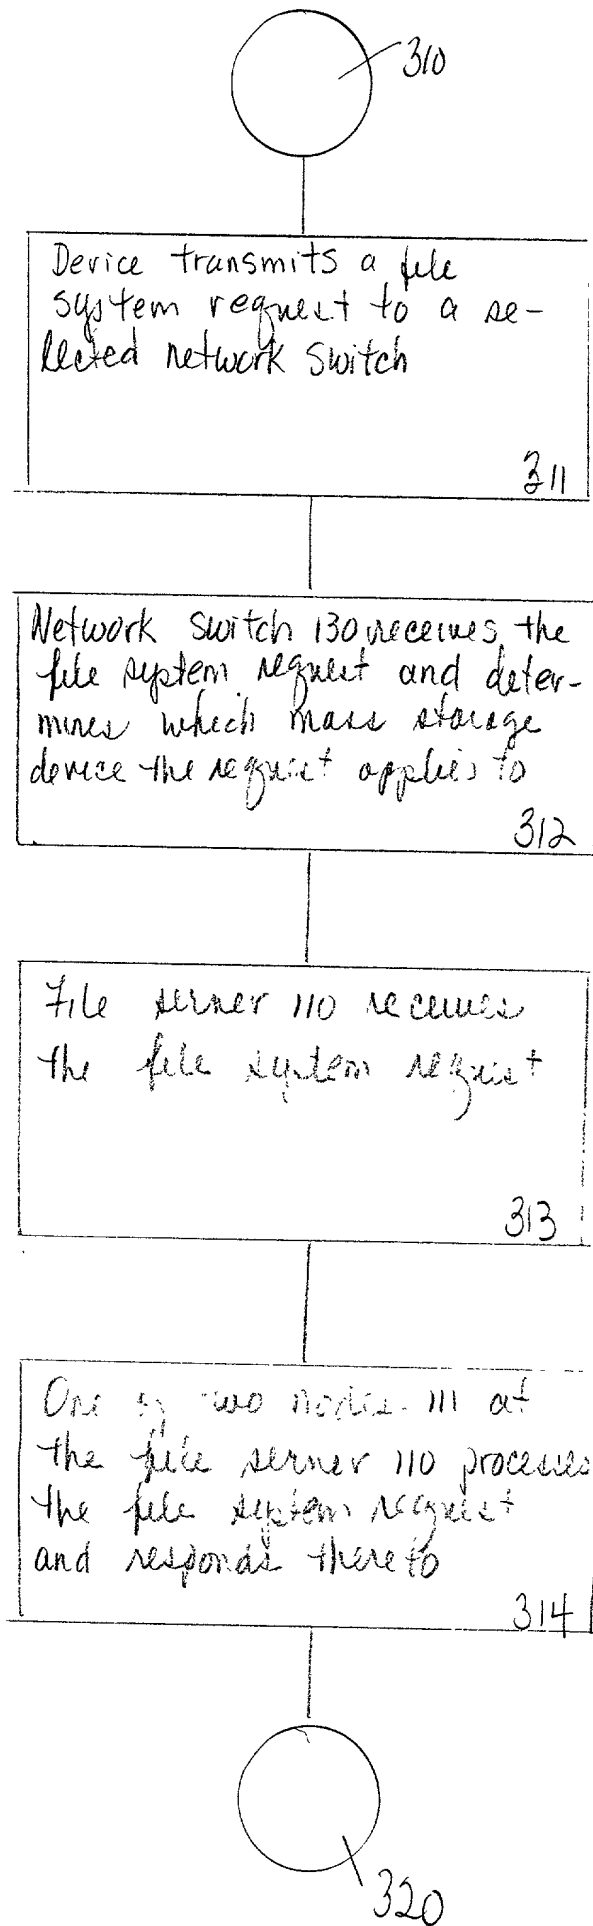 310
Device transmits a file
system request to a se-
lected network switch
311
Network Switch 130 receives the
file system request and deter-
mines which mass storage
device the request applies to
312
File server 110 receives
the file system request
313
One of two nodes 111 at
the file server 110 processes
the file system request
and responds thereto
314
320